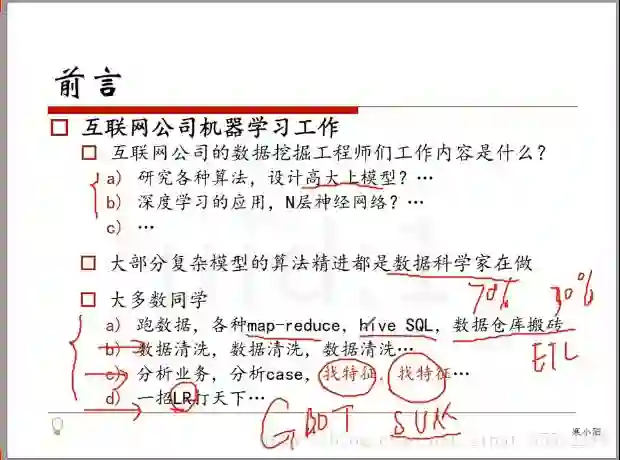 前言
互联网公司机器学习工作
互联网公司的数据挖掘工程师们工作内容是什么?
a) 研究各种算法,设计高大上模型?…
b) 深度学习的应用,N层神经网络?…
c) …
大部分复杂模型的算法精进都是数据科学家在做
70% 30%
大多数同学
a) 跑数据,各种map-reduce,hive SQL,数据仓库搬砖
ETL
b) 数据清洗,数据清洗,数据清洗…
c) 分析业务,分析case,找特征,找特征…
d) 一招LR打天下…
GBDT SVM
寒小阳